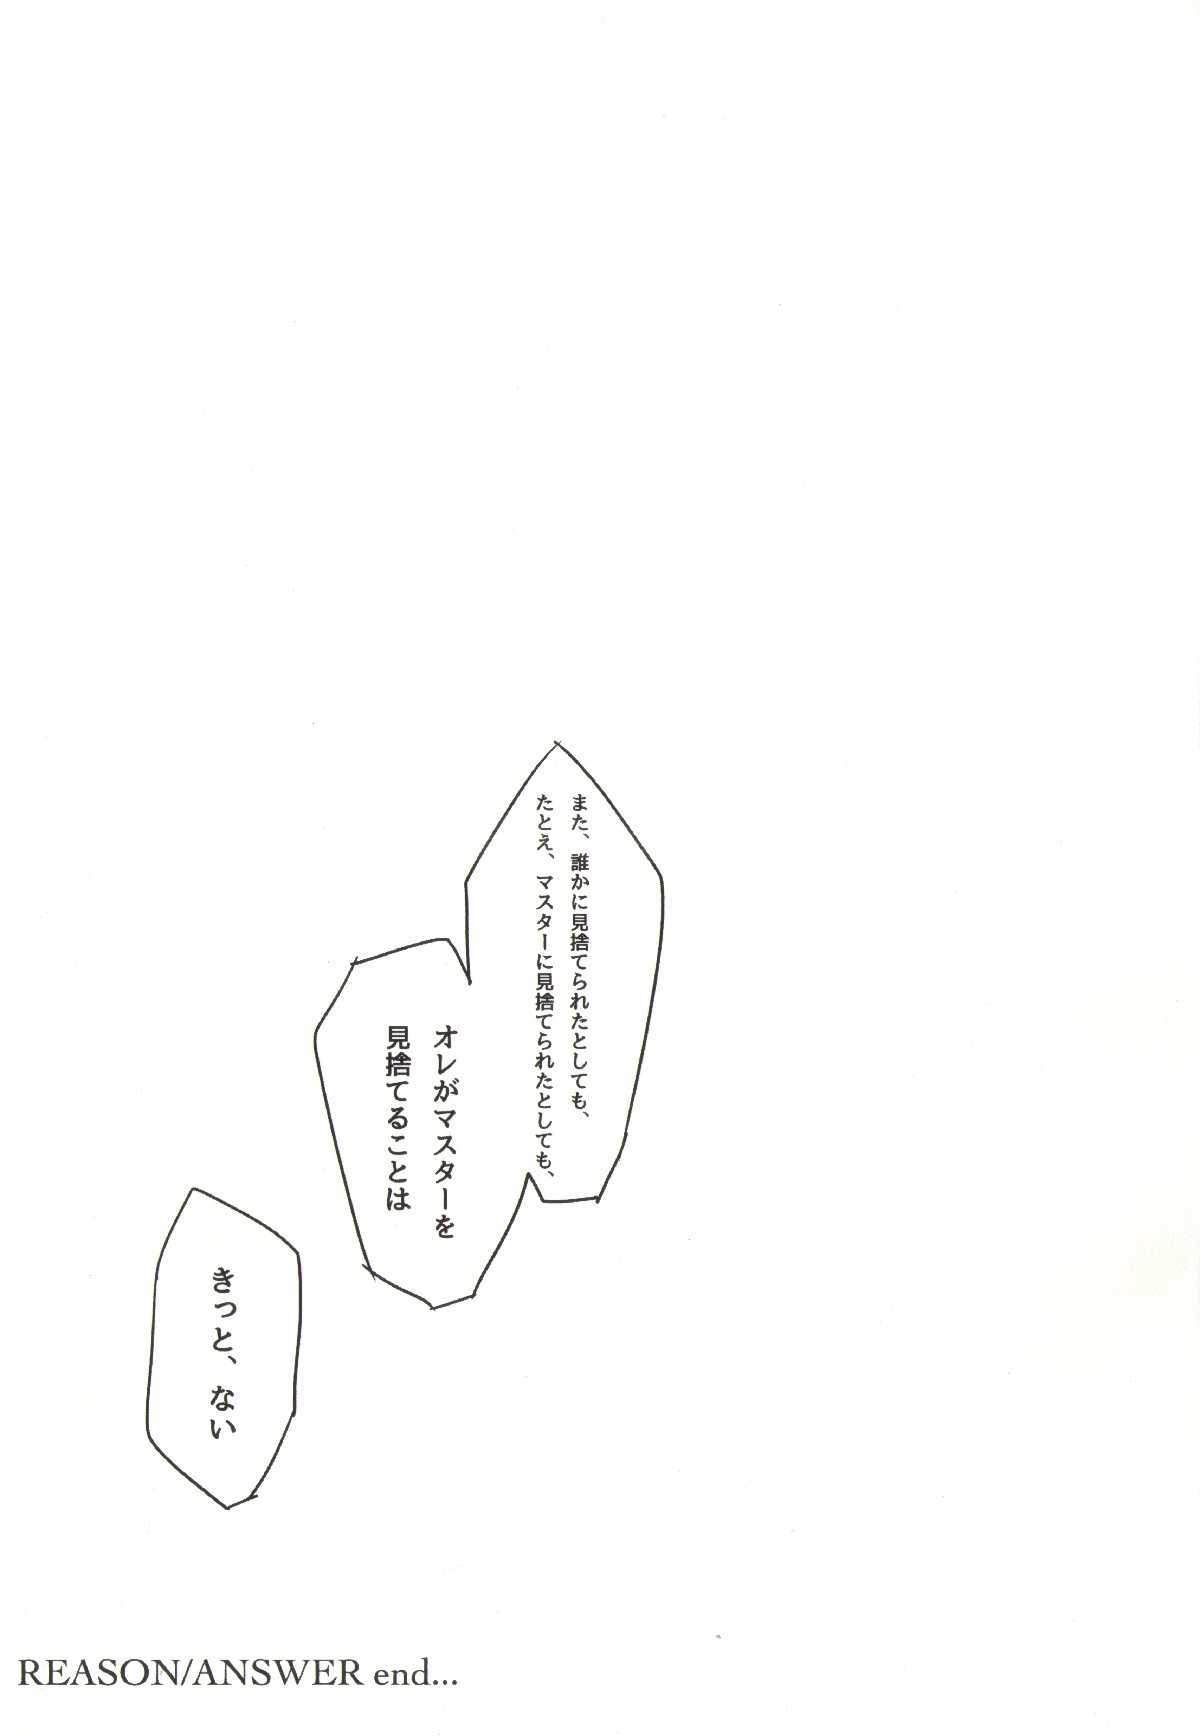 また、誰かに見捨てられたとしても、
たとえ、マスターに見捨てられたとしても、
オレがマスターを
見捨てることは
きっと、ない
REASON/ANSWER end...